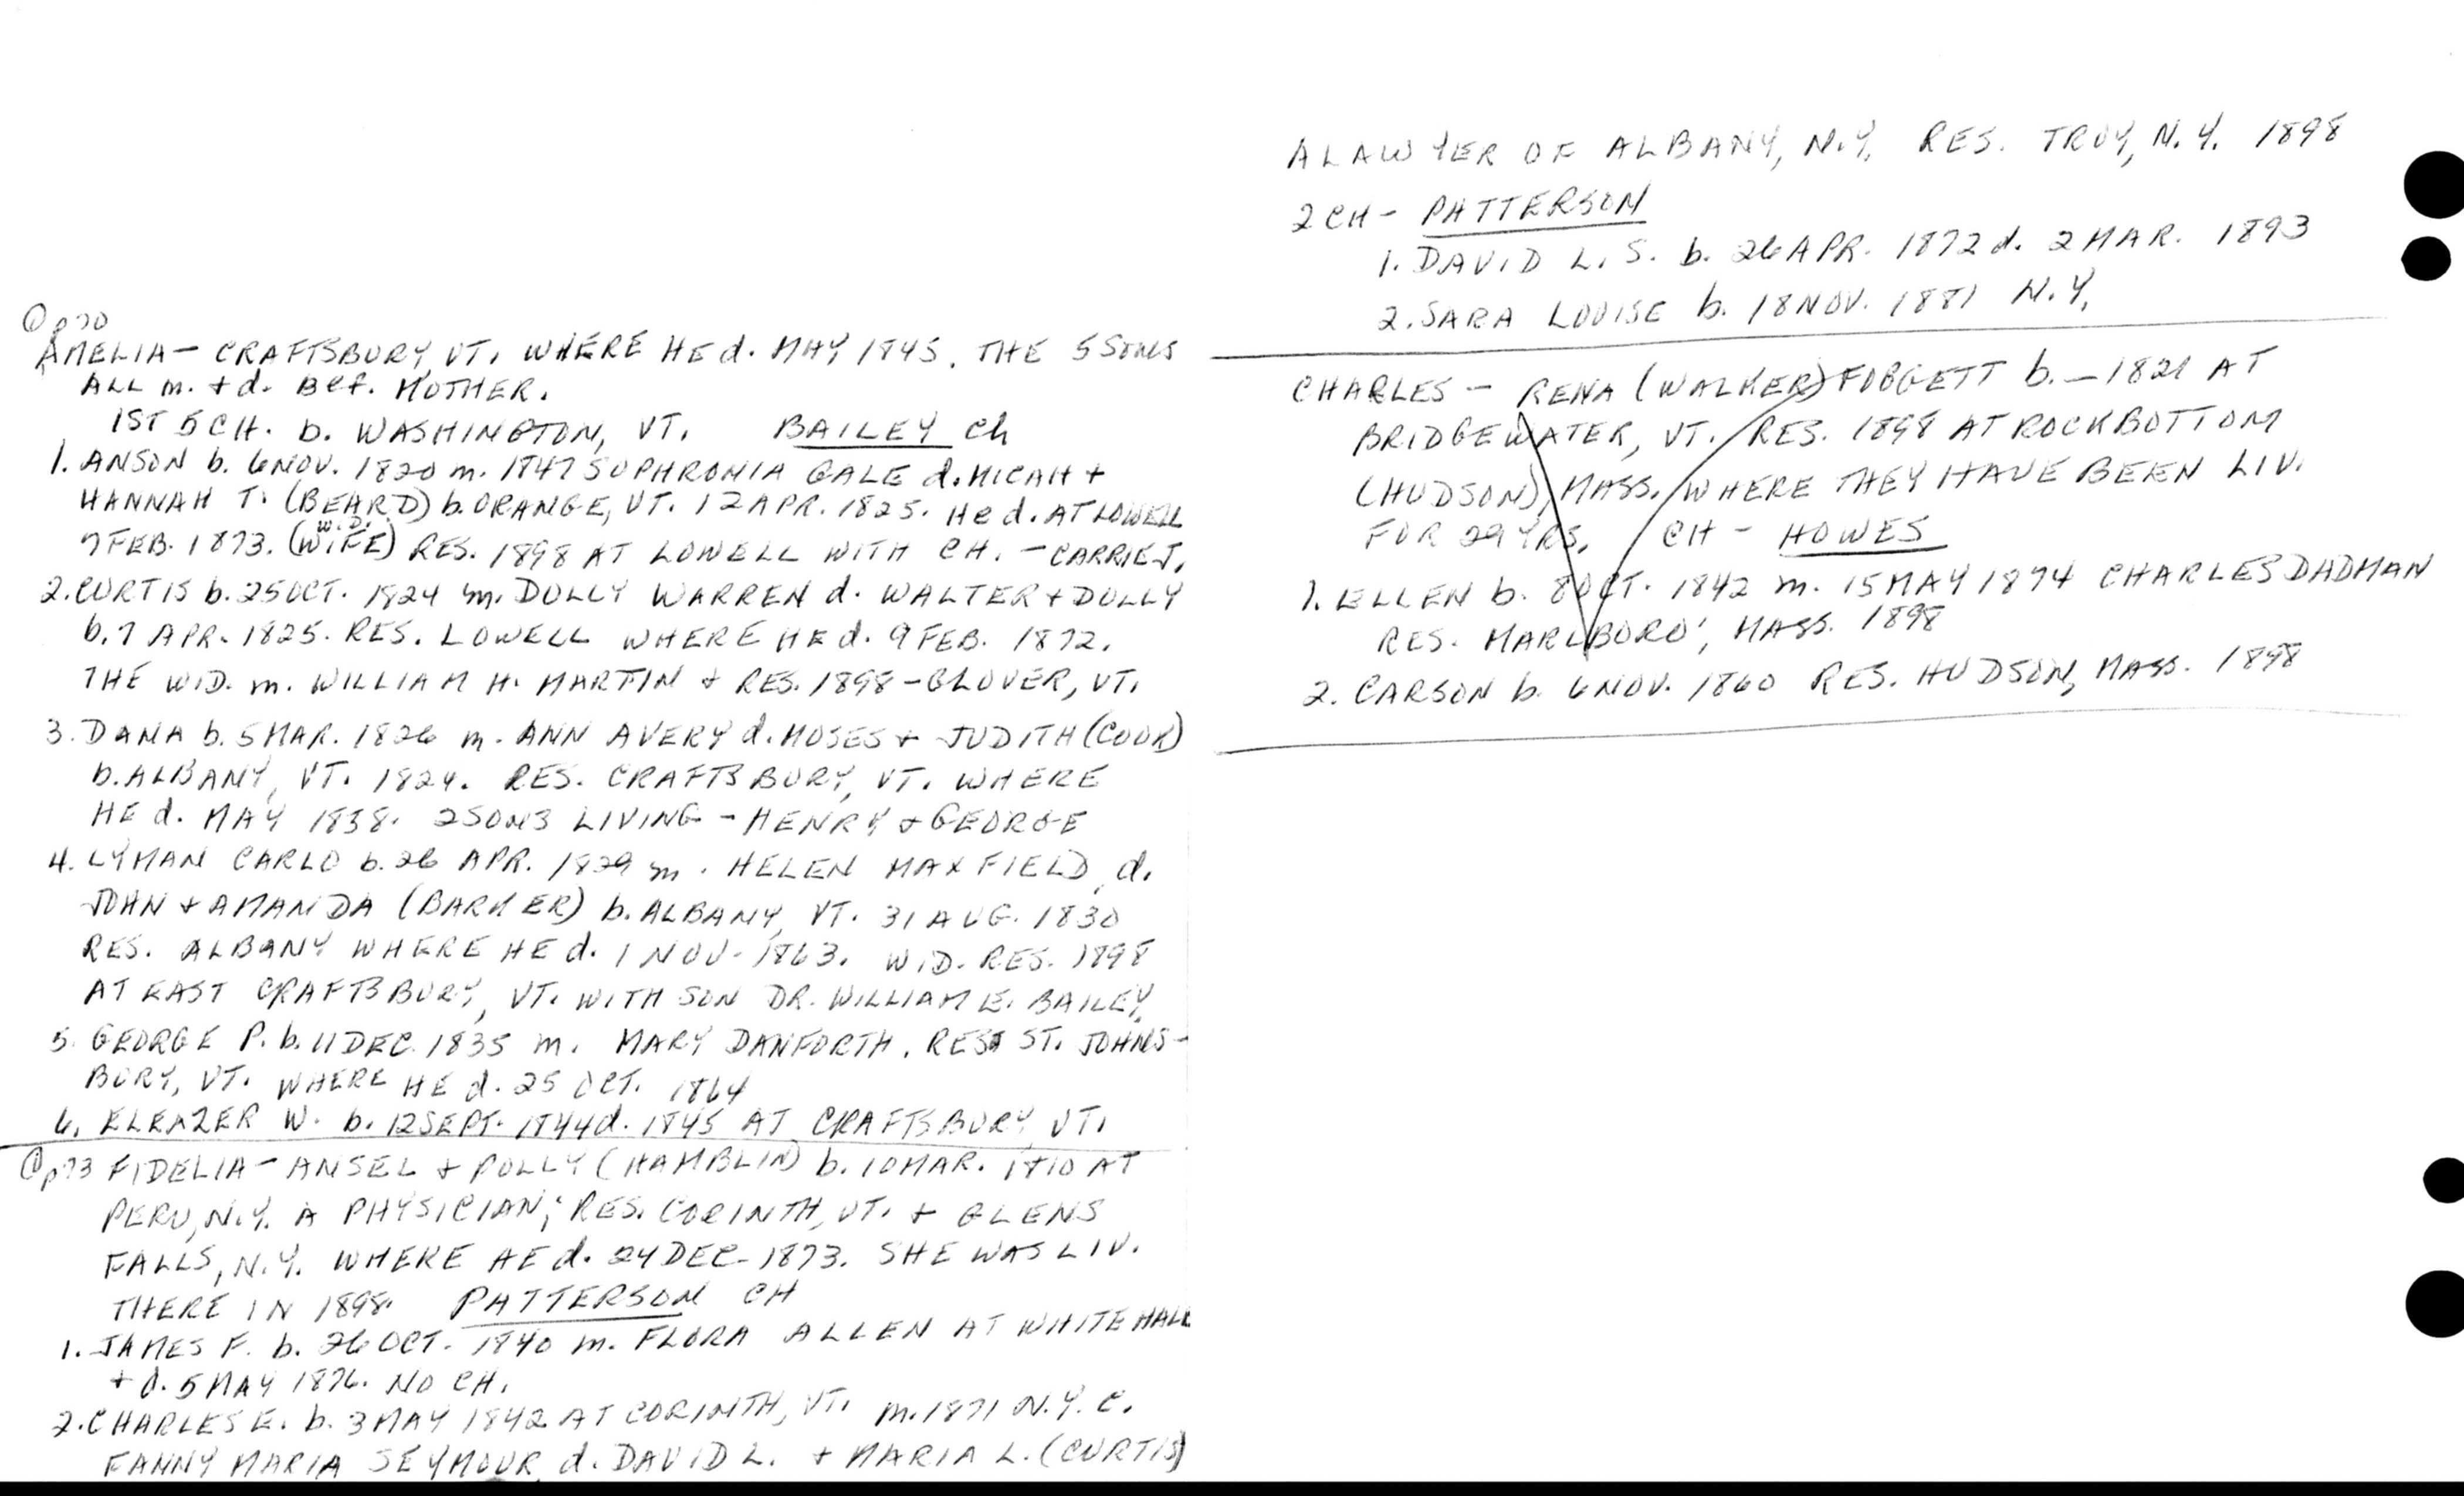 @ p70
AMELIA - CRAFTSBURY, VT. WHERE HE d. MAY 1845. THE 5 SONS
ALL m. + d. Bef. MOTHER.
1ST 5 CH. b. WASHINGTON, VT. BAILEY Ch
1. ANSON b. 6 NOV. 1820 m. 1847 SOPHRONIA GALE d. MICAH +
HANNAH T. (BEARD) b. ORANGE, VT. 12 APR. 1825. He d. AT LOWELL
7 FEB. 1873. (WIFE) W.D. RES. 1898 AT LOWELL WITH CH. - CARRIE J.
2. CURTIS b. 25 OCT. 1824 m. DOLLY WARREN d. WALTER + DOLLY
b. 7 APR. 1825. RES. LOWELL WHERE HE d. 9 FEB. 1872.
THE WID. m. WILLIAM H. MARTIN + RES. 1898 - GLOVER, VT.
3. DANA b. 5 MAR. 1826 m. ANN AVERY d. MOSES + JUDITH (COOK)
b. ALBANY, VT. 1824. RES. CRAFTSBURY, VT. WHERE
HE d. MAY 1838. 2 SONS LIVING - HENRY + GEORGE
4. LYMAN CARLO b. 26 APR. 1829 m. HELEN MAXFIELD, d.
JOHN + AMANDA (BARKER) b. ALBANY, VT. 31 AUG. 1830
RES. ALBANY WHERE HE d. 1 NOV. 1863. WID. RES. 1898
AT EAST CRAFTSBURY, VT. WITH SON DR. WILLIAM E. BAILEY.
5. GEORGE P. b. 11 DEC. 1835 m. MARY DANFORTH. RES. ST. JOHNS-
BURY, VT. WHERE HE d. 25 OCT. 1864
6. ELEAZER W. b. 12 SEPT. 1844 d. 1845 AT CRAFTSBURY, VT.
@ p73 FIDELIA - ANSEL + POLLY (HAMBLIN) b. 10 MAR. 1810 AT
PERU, N.Y. A PHYSICIAN; RES. CORINTH, VT. + GLENS
FALLS, N.Y. WHERE HE d. 24 DEC. 1873. SHE WAS LIV.
THERE IN 1898. PATTERSON CH
1. JAMES F. b. 26 OCT. 1840 m. FLORA ALLEN AT WHITEHALL
+ d. 5 MAY 1876. NO CH.
2. CHARLES E. b. 3 MAY 1842 AT CORINTH, VT. m. 1871 N.Y.C.
FANNY MARIA SEYMOUR d. DAVID L. + MARIA L. (CURTIS)
A LAWYER OF ALBANY, N.Y. RES. TROY, N.Y. 1898
2 CH - PATTERSON
1. DAVID L. S. b. 26 APR. 1872 d. 2 MAR. 1893
2. SARA LOUISE b. 18 NOV. 1881 N.Y.
CHARLES - RENA (WALKER) FOBGETT b. — 1821 AT
BRIDGEWATER, VT. RES. 1898 AT ROCKBOTTOM
(HUDSON), MASS. WHERE THEY HAVE BEEN LIV.
FOR 29 YRS. CH - HOWES
1. ELLEN b. 8 OCT. 1842 m. 15 MAY 1874 CHARLES DADMAN
RES. MARLBORO', MASS. 1898
2. CARSON b. 6 NOV. 1860 RES. HUDSON, MASS. 1898